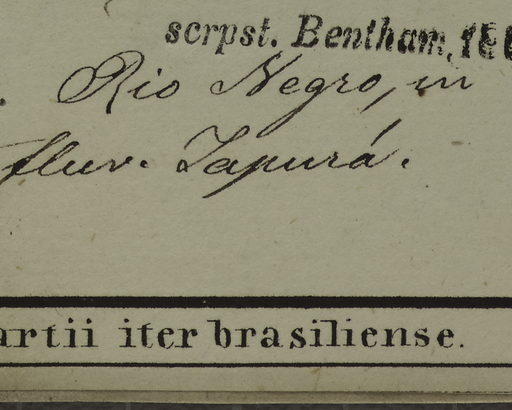 scrpst. Bentham,
Rio Negro, in
fluv. Japurá.
artii iter brasiliense.